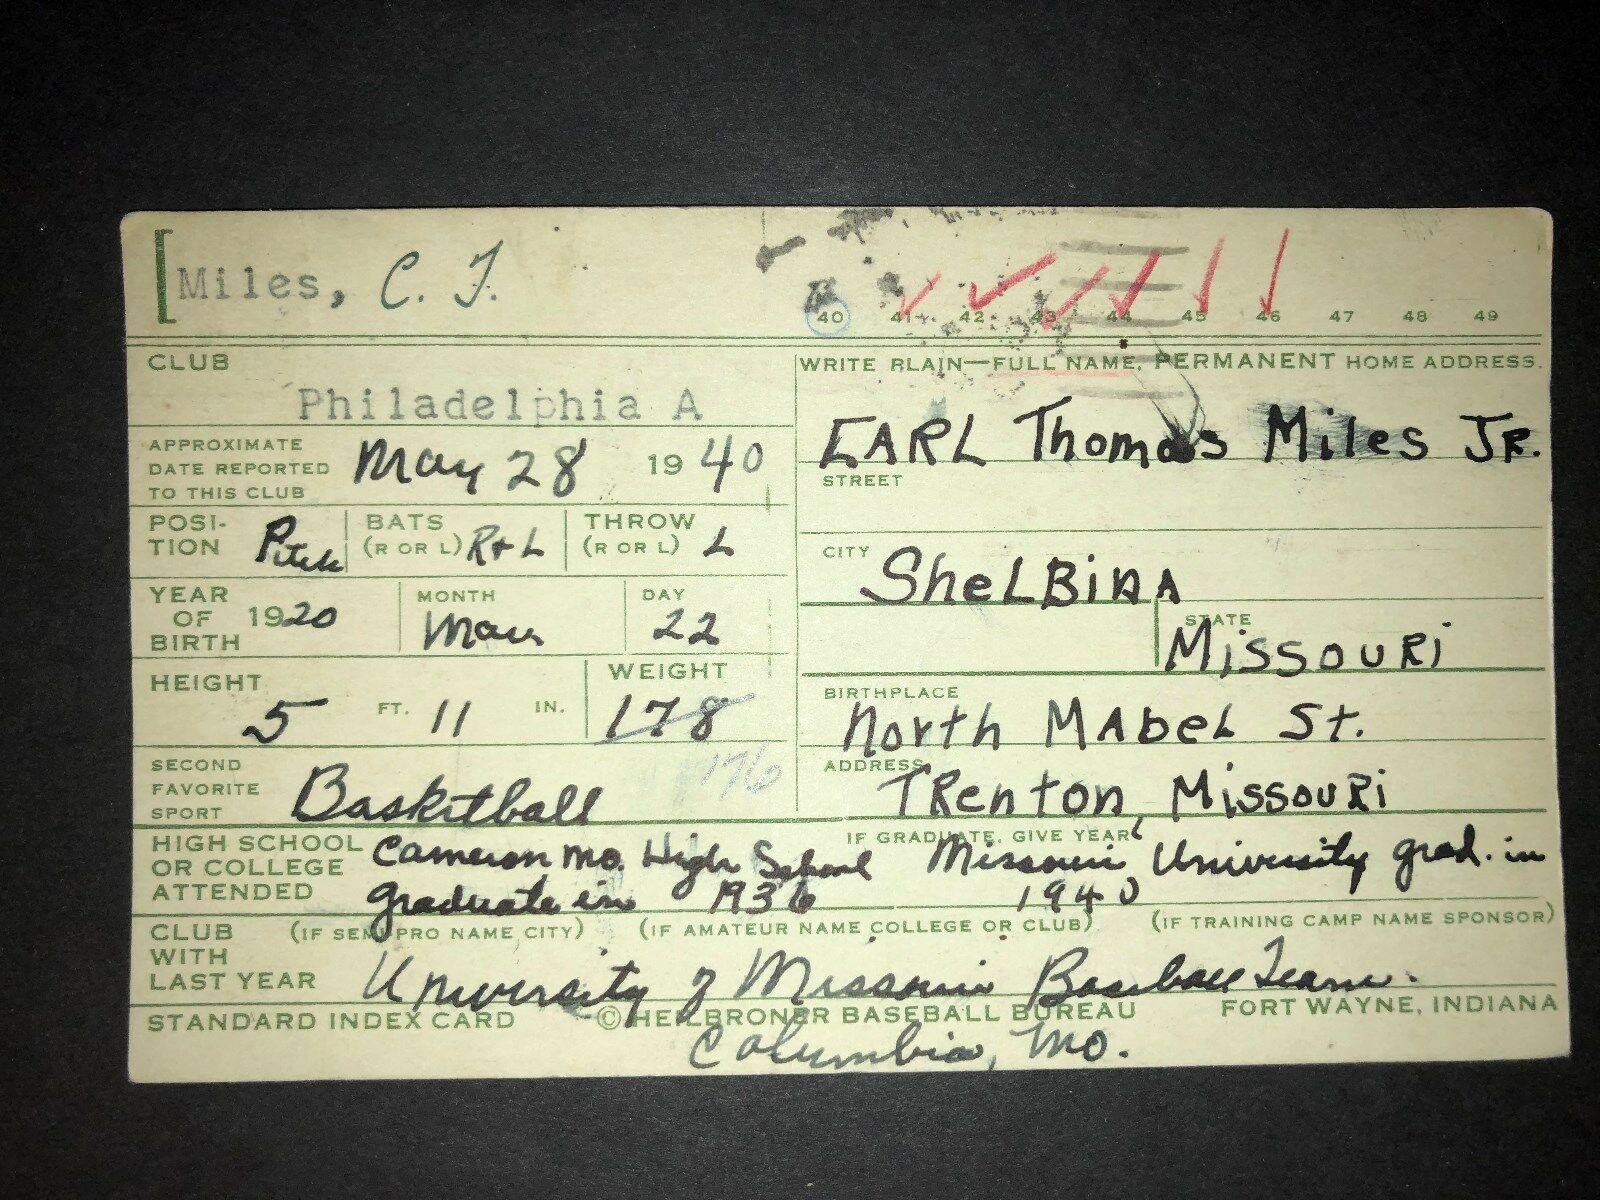 [Miles, C. T.
40 41 42 43 44 45 46 47 48 49
CLUB
Philadelphia A
WRITE PLAIN—FULL NAME, PERMANENT HOME ADDRESS.
EARL Thomas Miles JR.
APPROXIMATE
DATE REPORTED
TO THIS CLUB
May 28 1940
STREET
POSI-
TION
Pitch
BATS
(R OR L) R+L
THROW
(R OR L) L
CITY SheLBinA
YEAR
OF
BIRTH
1920
MONTH
DAY
22
STATE
MissouRi
HEIGHT
5 FT. 11 IN.
WEIGHT
178
176
BIRTHPLACE
North MAbeL St.
SECOND
FAVORITE
SPORT
Basketball
ADDRESS
TRenton, MissouRi
HIGH SCHOOL
OR COLLEGE
ATTENDED
IF GRADUATE, GIVE YEAR
Cameron Mo. High School Missouri University grad. in
graduate in 1936 1940
CLUB
WITH
LAST YEAR
(IF SEMI PRO NAME CITY) (IF AMATEUR NAME COLLEGE OR CLUB) (IF TRAINING CAMP NAME SPONSOR)
University of Missouri Baseball Team.
STANDARD INDEX CARD © HEILBRONER BASEBALL BUREAU FORT WAYNE, INDIANA
Columbia, Mo.